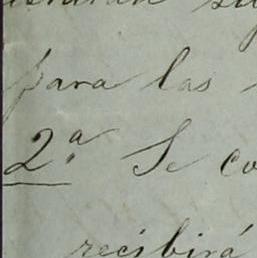 para las
2ª Se co
recibirá